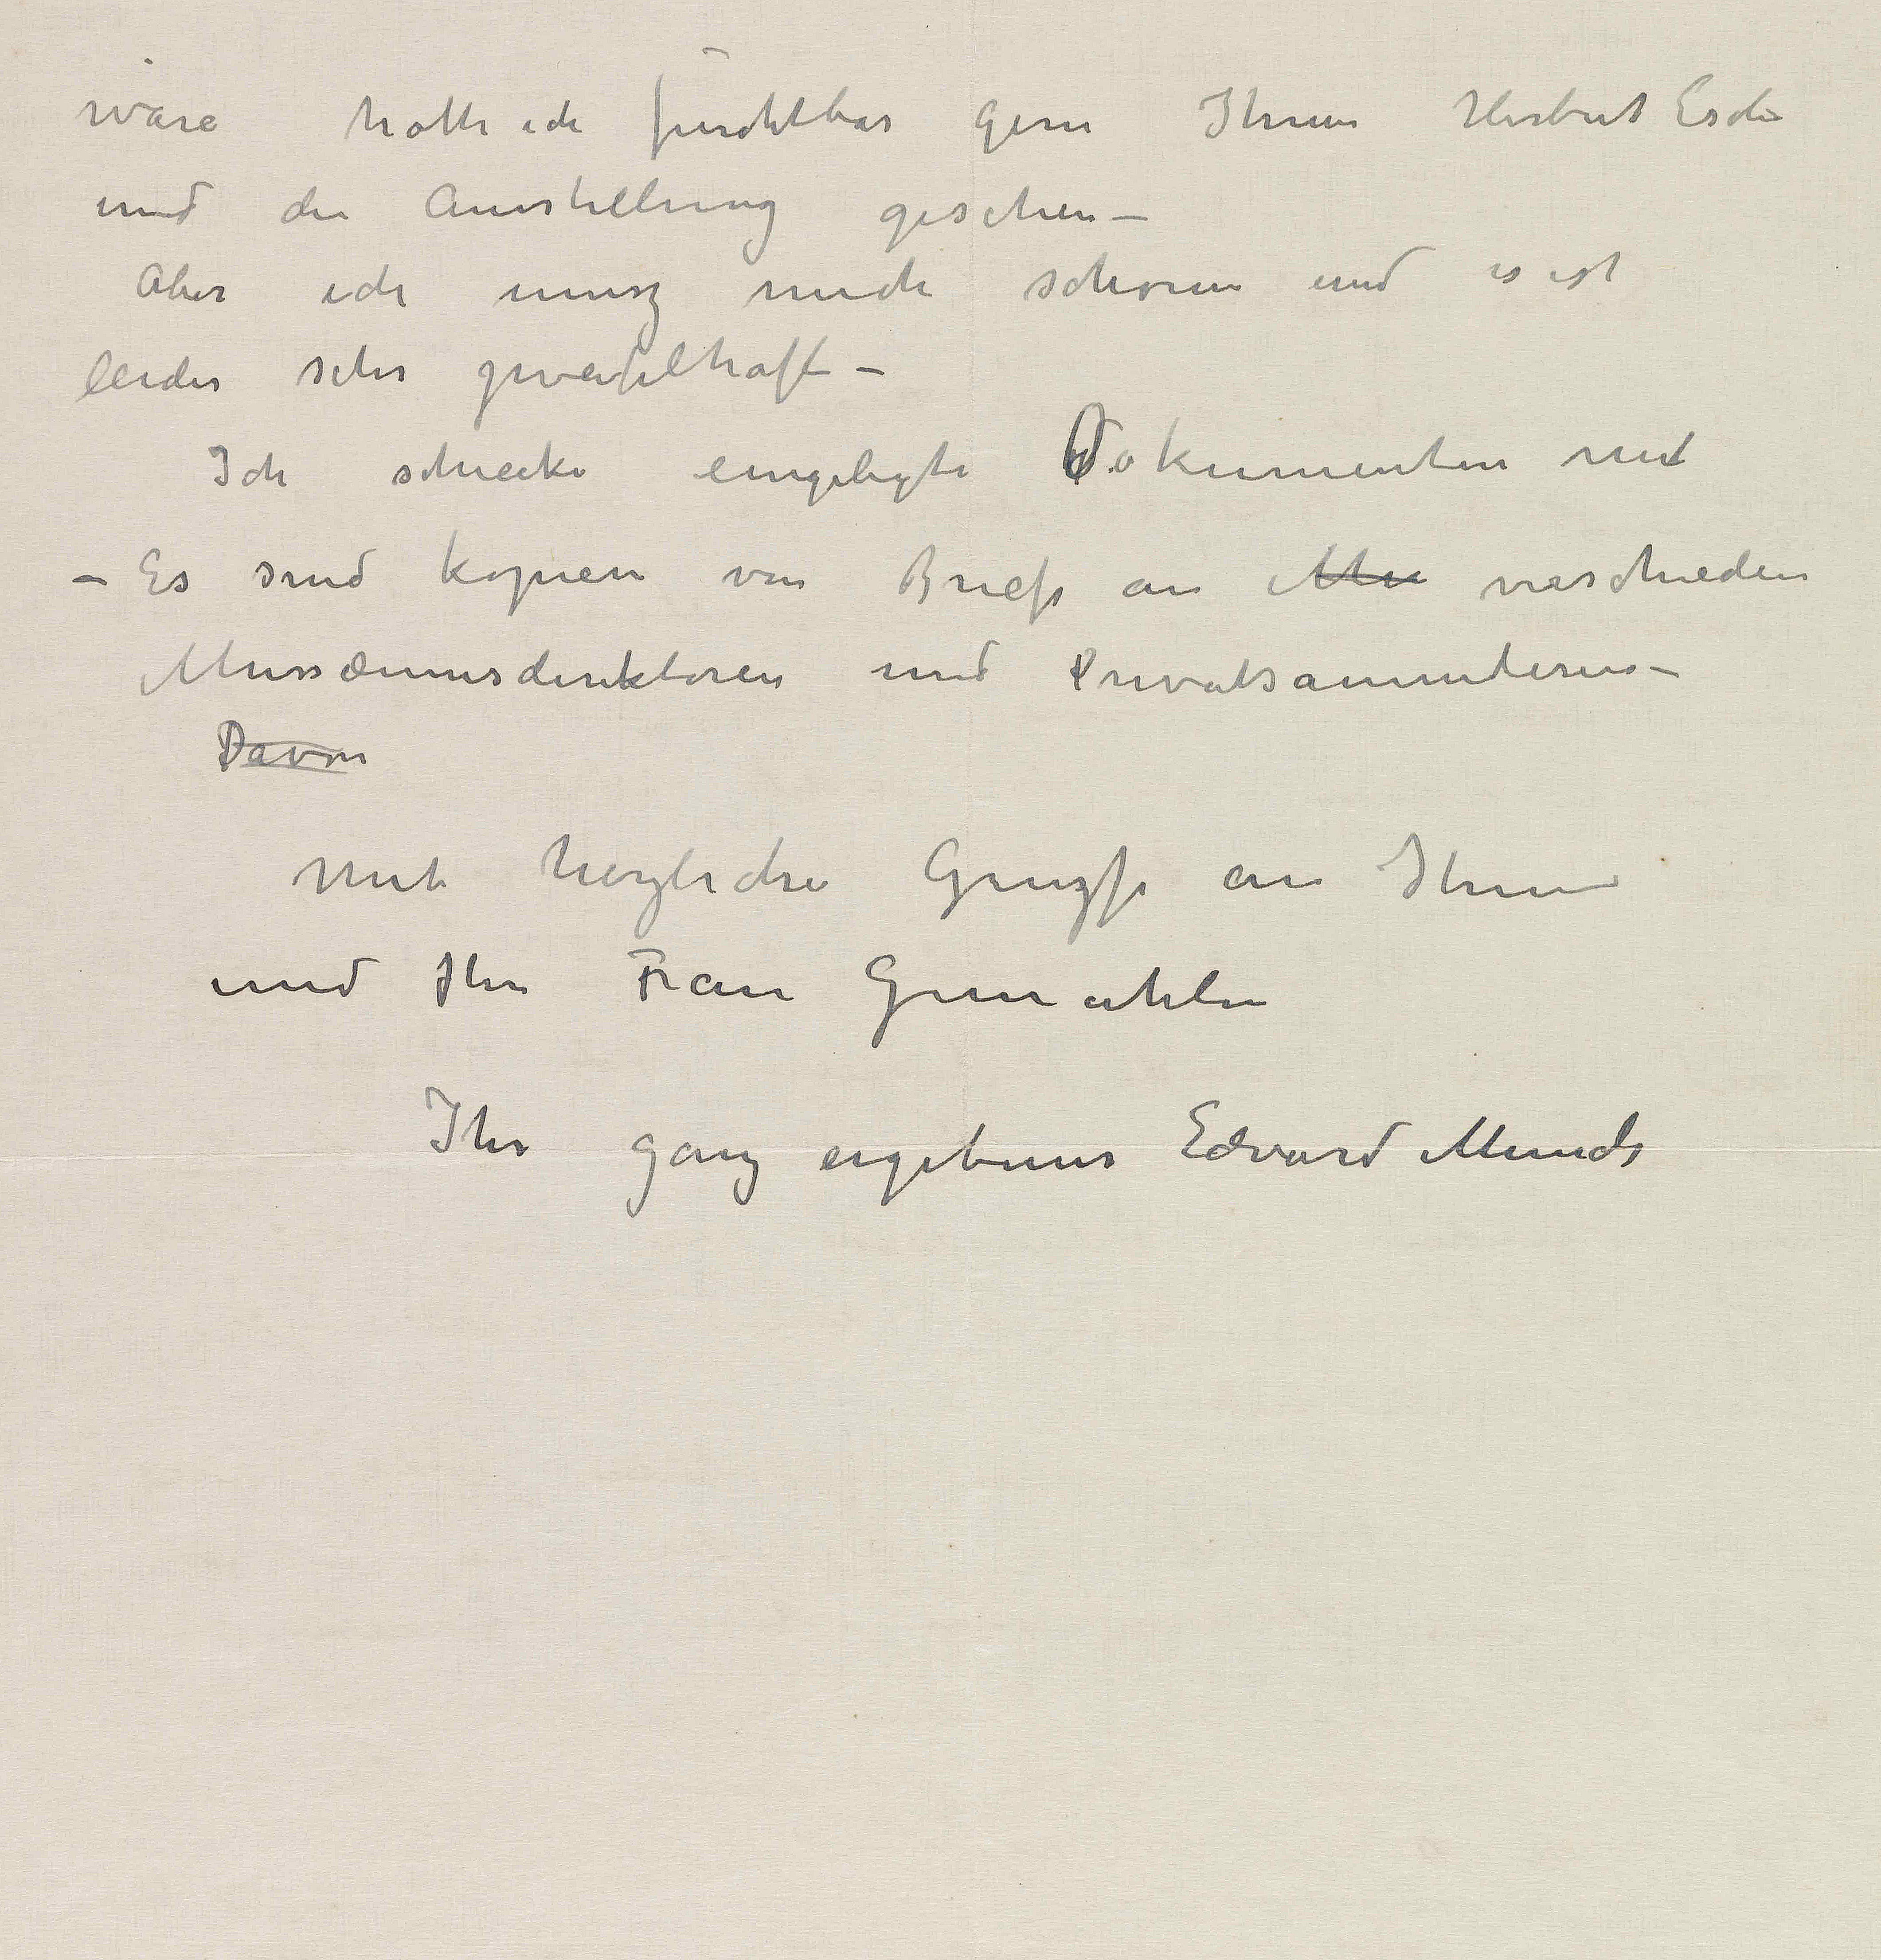 wäre hätte ich furchtbar gern Ihnen Herbert Esche
und die Ausstellung gesehen –
Aber ich musz mich schonen und es ist
leider sehr zweifelhaft –
Ich schicke eingelegte Dokumenten mit
– Es sind kopien von Briefe an verschieden
Mussæumsdirektoren und Privatsammleren –
Davon
Mit herzliche Gruzse an Ihnen
und Ihre Frau Gemahlin
Ihr ganz ergebener Edvard Munch